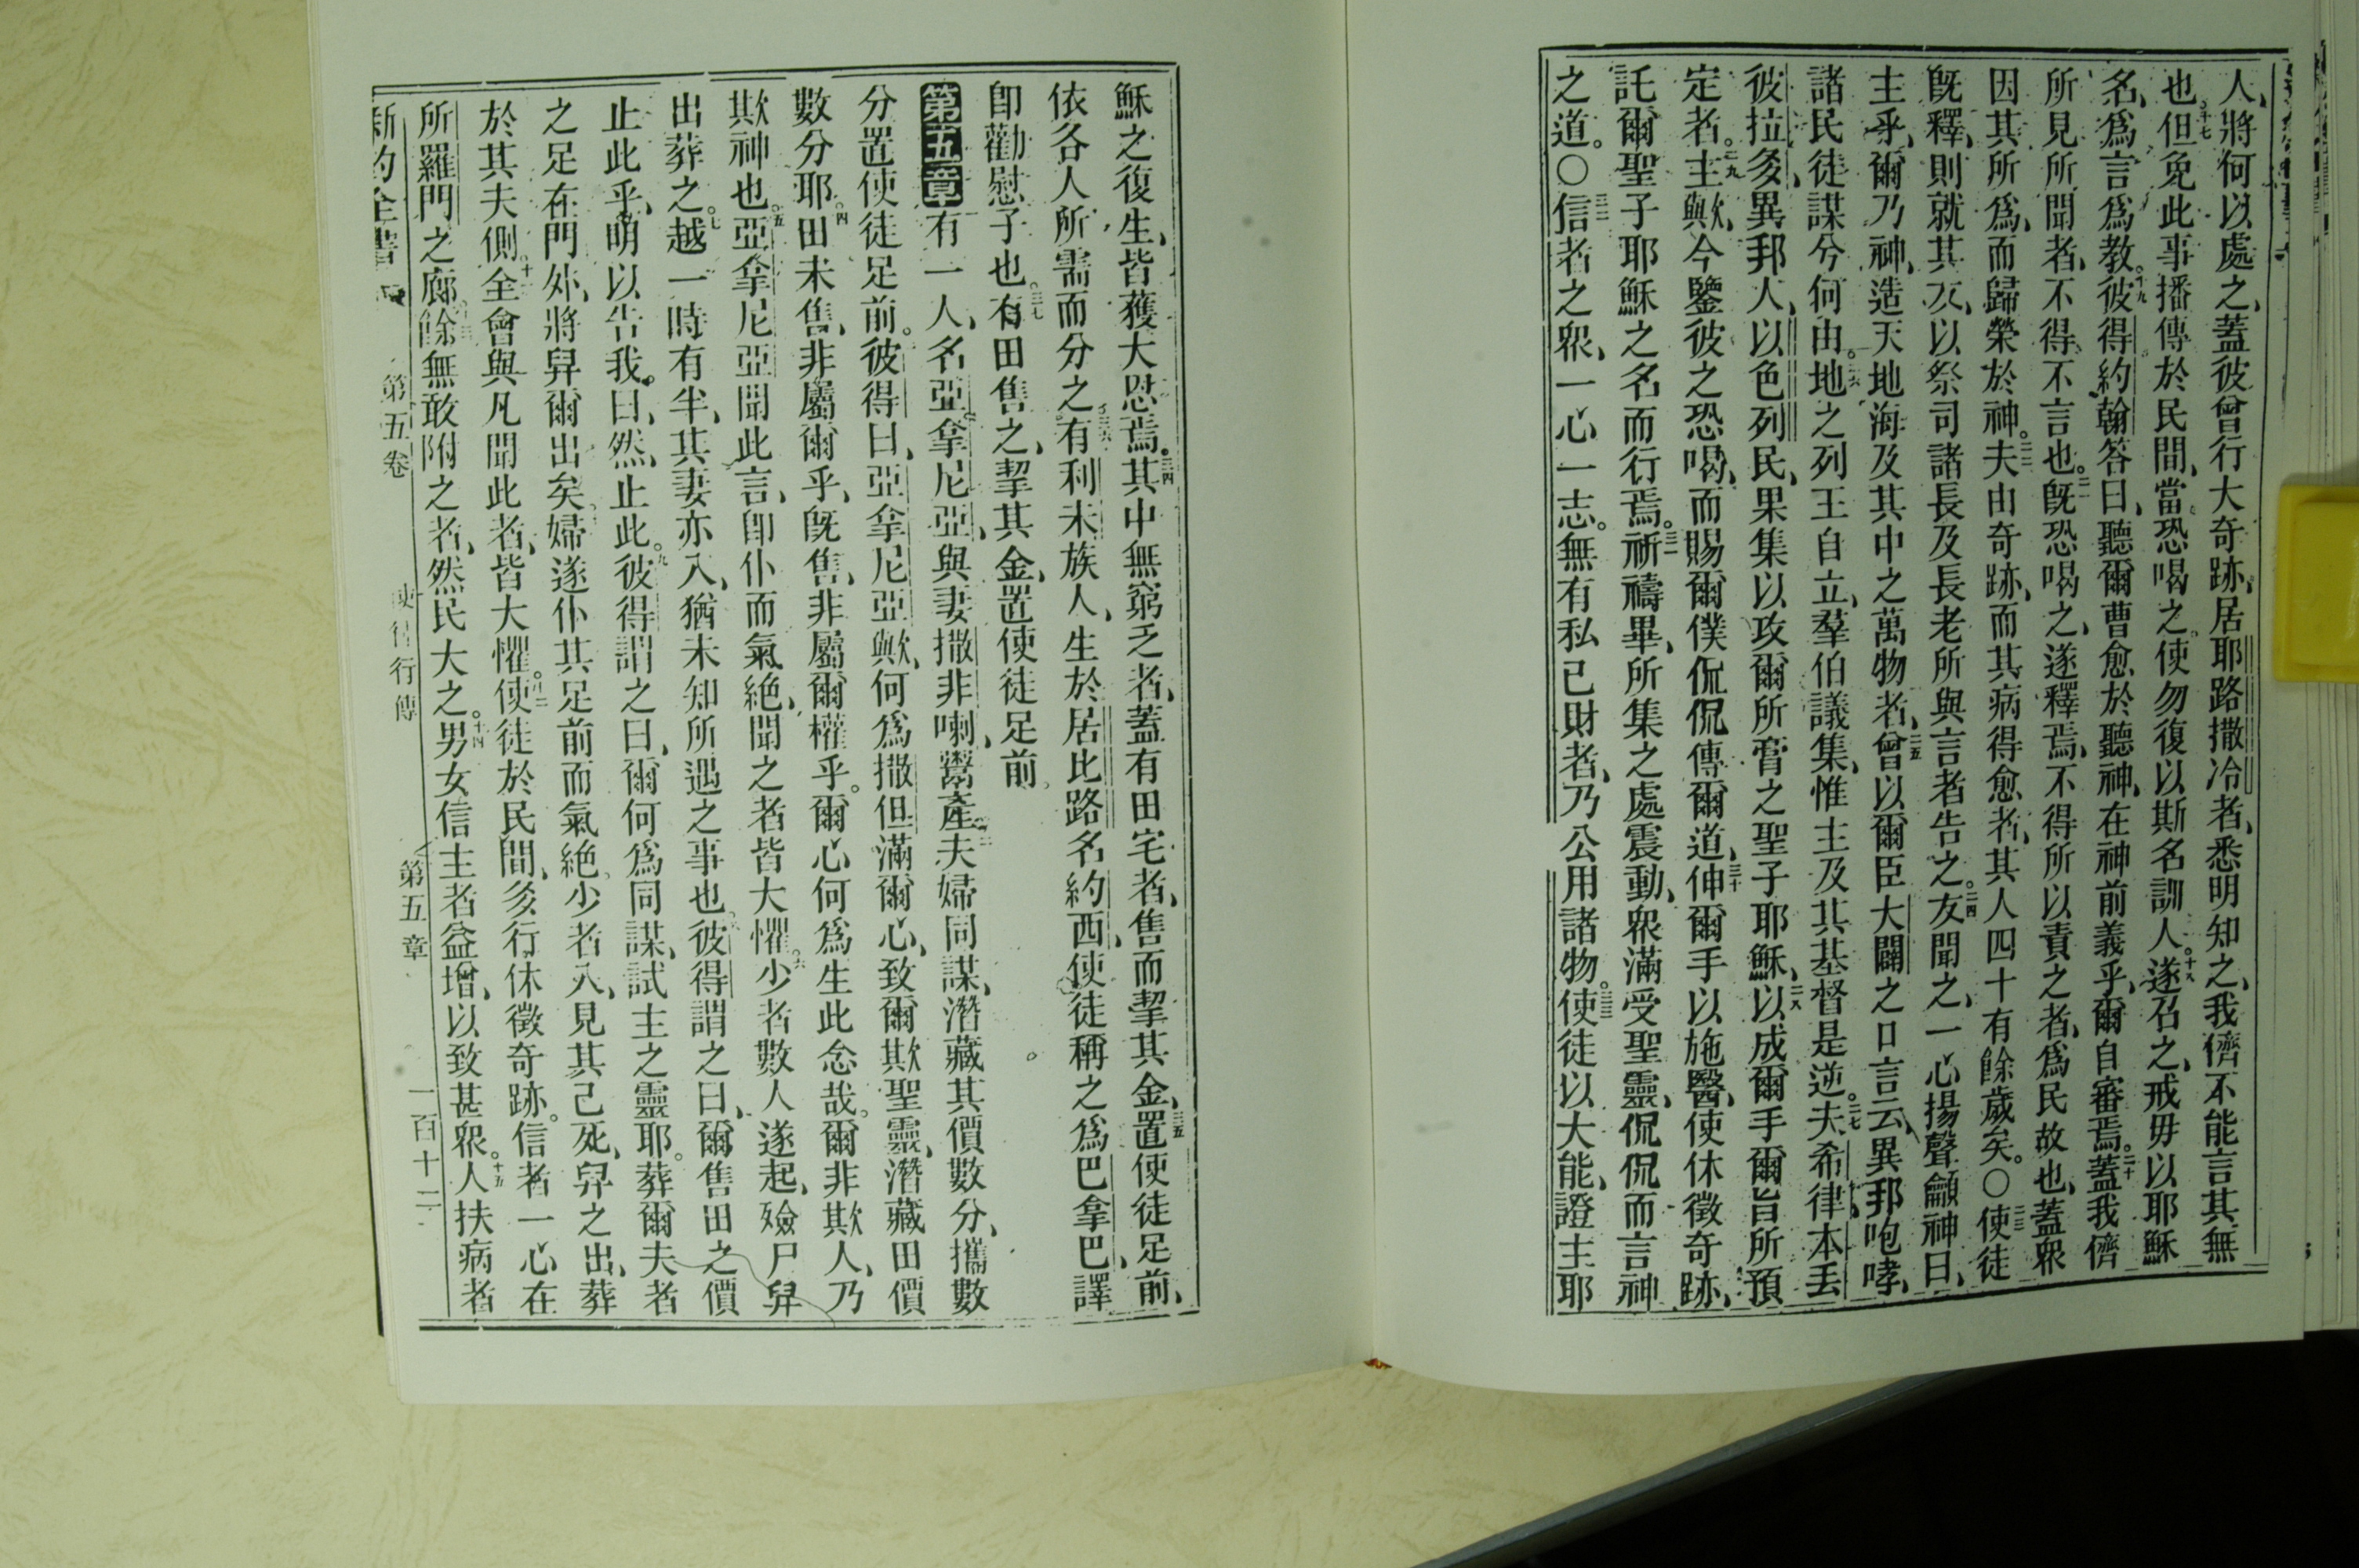 人、將何以處之、蓋彼曾行大奇跡、居耶路撒冷者、悉明知之、我儕不能言其無
也。十七但免此事播傳於民間、當恐喝之、使勿復以斯名訓人。十八遂召之、戒毋以耶穌
名、爲言爲教。十九彼得約翰答曰、聽爾曹愈於聽神、在神前義乎、爾自審焉。二十蓋我儕
所見所聞者、不得不言也。二一旣恐喝之、遂釋焉、不得所以責之者、爲民故也、蓋衆
因其所爲、而歸榮於神。二二夫由奇跡、而其病得愈者、其人四十有餘歲矣。〇二三使徒
旣釋、則就其友、以祭司諸長及長老所與言者告之。二四友聞之、一心揚聲籲神曰、
主乎、爾乃神、造天地海及其中之萬物者、二五曾以爾臣大闢之口言云、異邦咆哮、
諸民徒謀兮何由。二六地之列王自立、羣伯議集、惟主及其基督是逆。二七夫希律本丟
彼拉多、異邦人、以色列民、果集以攻爾所膏之聖子耶穌、二八以成爾手爾旨所預
定者。二九主歟、今鑒彼之恐喝、而賜爾僕侃侃傳爾道、三十伸爾手以施醫、使休徵奇跡、
託爾聖子耶穌之名而行焉。三一祈禱畢、所集之處震動、衆滿受聖靈、侃侃而言神
之道。〇三二信者之衆、一心一志。無有私已財者、乃公用諸物。三三使徒以大能、證主耶
穌之復生、皆獲大恩焉。三四其中無窮乏者、蓋有田宅者、售而挈其金、三五置使徒足前、
依各人所需而分之。三六有利未族人、生於居比路、名約西、使徒稱之爲巴拿巴、譯
卽勸慰子也。三七有田售之、挈其金、置使徒足前。
第五章有一人、名亞拿尼亞、與妻撒非喇、鬻產、二夫婦同謀、潛藏其價數分、攜數
分置使徒足前。彼得曰、亞拿尼亞歟、何爲撒但滿爾心、致爾欺聖靈、潛藏田價
數分耶。四田未售、非屬爾乎、旣售、非屬爾權乎。爾心何爲生此念哉。爾非欺人、乃
欺神也。五亞拿尼亞聞此言、卽仆而氣絕、聞之者皆大懼。六少者數人遂起、殮尸舁
出葬之。七越一時有半、其妻亦入、猶未知所遇之事也。八彼得謂之曰、爾售田之價
止此乎、明以告我。曰、然、止此。九彼得謂之曰、爾何爲同謀、試主之靈耶。葬爾夫者
之足在門外、將舁爾出矣。婦遂仆其足前而氣絕。少者入、見其已死、舁之出、葬
於其夫側。十一全會與凡聞此者、皆大懼。十二使徒於民間、多行休徵奇跡。信者一心在
所羅門之廊。十三餘無敢附之者、然民大之。十四男女信主者益增、以致甚衆。十五人扶病者
新約全書 第五卷 使徒行傳 第五章 一百十二